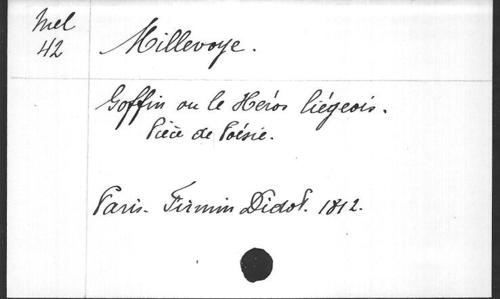 Mel
42
Millevoye.
Goffin ou le Héros liégeois.
Pièce de Poésie.
Paris. Firmin Didot. 1812.